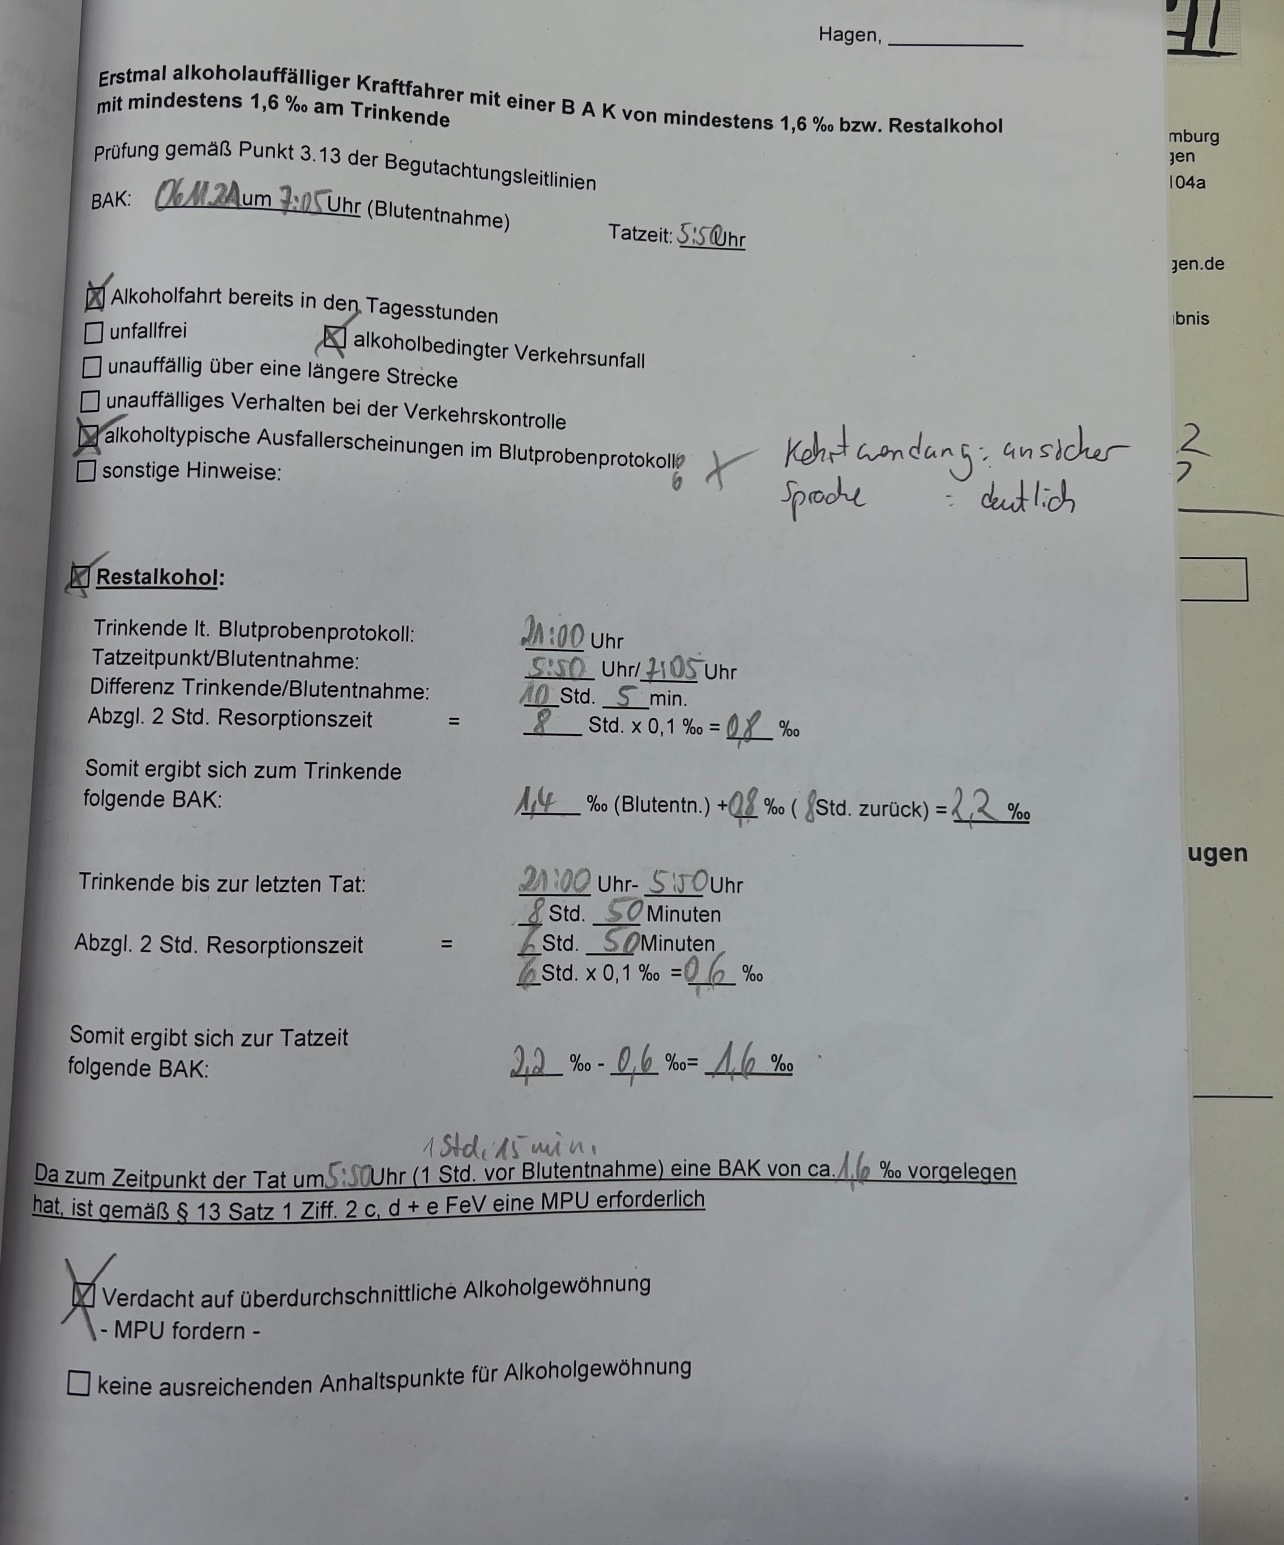 Hagen,
Erstmal alkoholauffälliger Kraftfahrer mit einer B A K von mindestens 1,6 ‰ bzw. Restalkohol
mit mindestens 1,6 ‰ am Trinkende
Prüfung gemäß Punkt 3.13 der Begutachtungsleitlinien
BAK: 06.11.21 um 7:05 Uhr (Blutentnahme)
Tatzeit: 5:50 Uhr
Alkoholfahrt bereits in den Tagesstunden
unfallfrei alkoholbedingter Verkehrsunfall
unauffällig über eine längere Strecke
unauffälliges Verhalten bei der Verkehrskontrolle
alkoholtypische Ausfallerscheinungen im Blutprobenprotokoll
Kehrtwendung: unsicher
sonstige Hinweise:
Sprache : deutlich
Restalkohol:
Trinkende lt. Blutprobenprotokoll: 21:00 Uhr
Tatzeitpunkt/Blutentnahme: 5:50 Uhr/ 7:05 Uhr
Differenz Trinkende/Blutentnahme: 10 Std. 5 min.
Abzgl. 2 Std. Resorptionszeit = 8 Std. x 0,1 ‰ = 0,8 ‰
Somit ergibt sich zum Trinkende
folgende BAK: 1,4 ‰ (Blutentn.) + 0,8 ‰ ( 8 Std. zurück) = 2,2 ‰
Trinkende bis zur letzten Tat: 21:00 Uhr- 5:50 Uhr
8 Std. 50 Minuten
Abzgl. 2 Std. Resorptionszeit = 6 Std. 50 Minuten
6 Std. x 0,1 ‰ = 0,6 ‰
Somit ergibt sich zur Tatzeit
folgende BAK: 2,2 ‰ - 0,6 ‰= 1,6 ‰
1 Std. 15 min.
Da zum Zeitpunkt der Tat um 5:50 Uhr (1 Std. vor Blutentnahme) eine BAK von ca. 1,6 ‰ vorgelegen
hat, ist gemäß § 13 Satz 1 Ziff. 2 c, d + e FeV eine MPU erforderlich
Verdacht auf überdurchschnittliche Alkoholgewöhnung
- MPU fordern -
keine ausreichenden Anhaltspunkte für Alkoholgewöhnung
mburg
gen
104a
gen.de
bnis
2
ugen